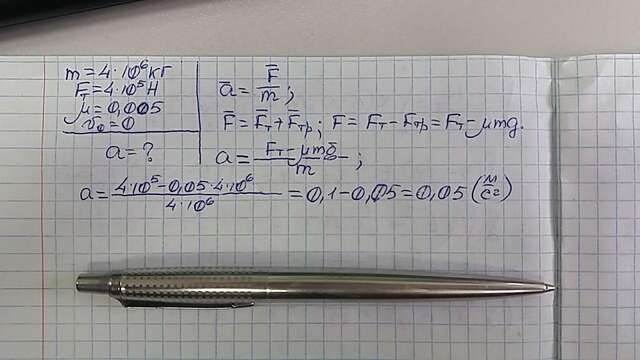 m=4·10⁶кг
Fт=4·10⁵Н
μ=0,005
v₀=0
a=?
a̅=F̅/m;
F̅=F̅т+F̅тр; F=Fт-Fтр=Fт-μmg.
a=(Fт-μmg)/m;
a=(4·10⁵-0,05·4·10⁶)/(4·10⁶)=0,1-0,05=0,05(м/с²)